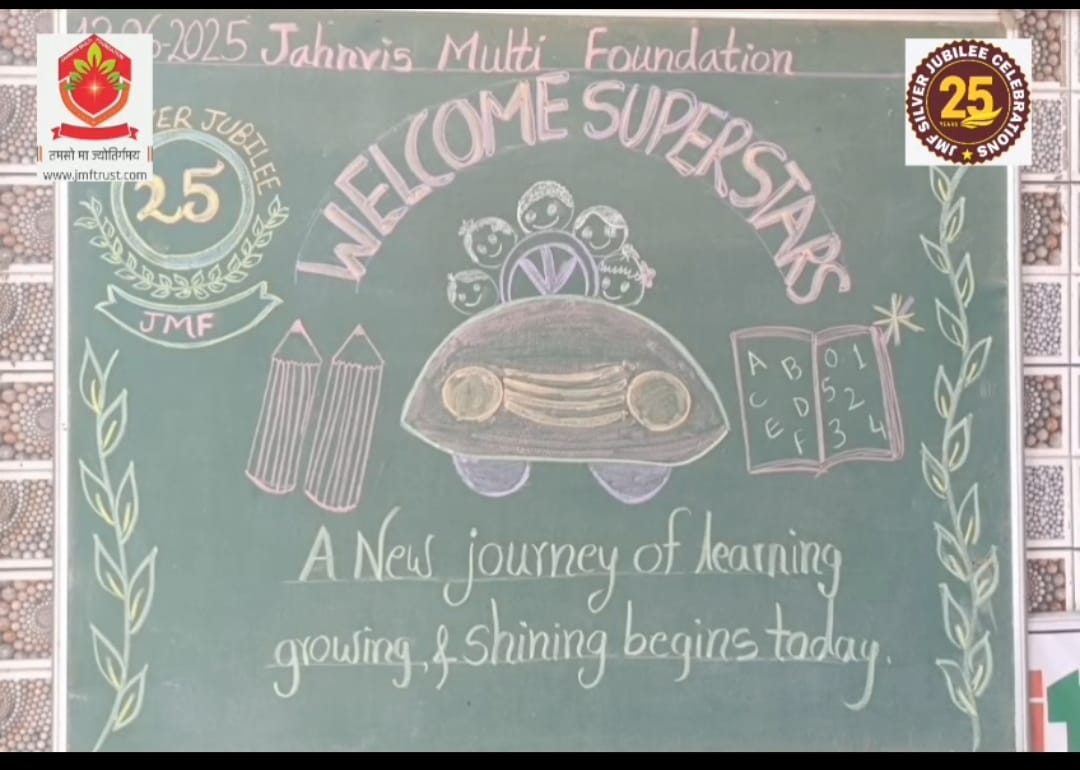 -2025 Jahnvis Multi Foundation
तमसो मा ज्योतिर्गमय
www.jmftrust.com
JMF SILVER JUBILEE CELEBRATIONS
25
YEARS
VER JUBILEE
25
JMF
WELCOME SUPERSTARS
A B 0 1
C D 5 2
E F 3 4
A New journey of learning
growing, & Shining begins today.
1